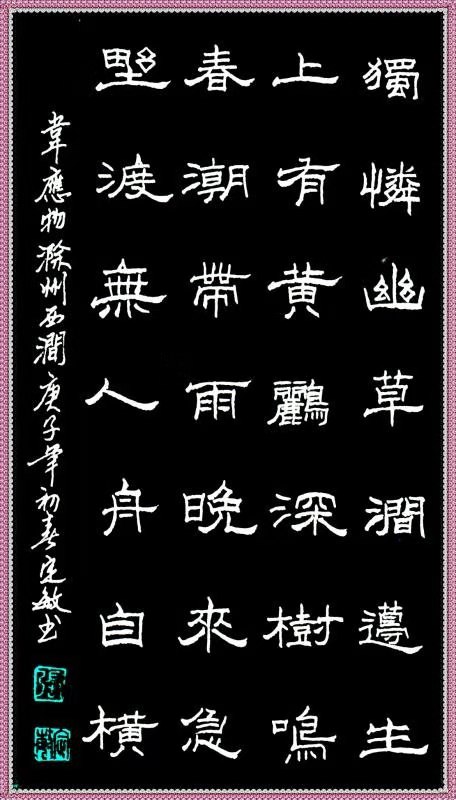 獨憐幽草澗邊生
上有黃鸝深樹鳴
春潮帶雨晚來急
野渡無人舟自橫
韋應物滁州西澗庚子年初春定敏书